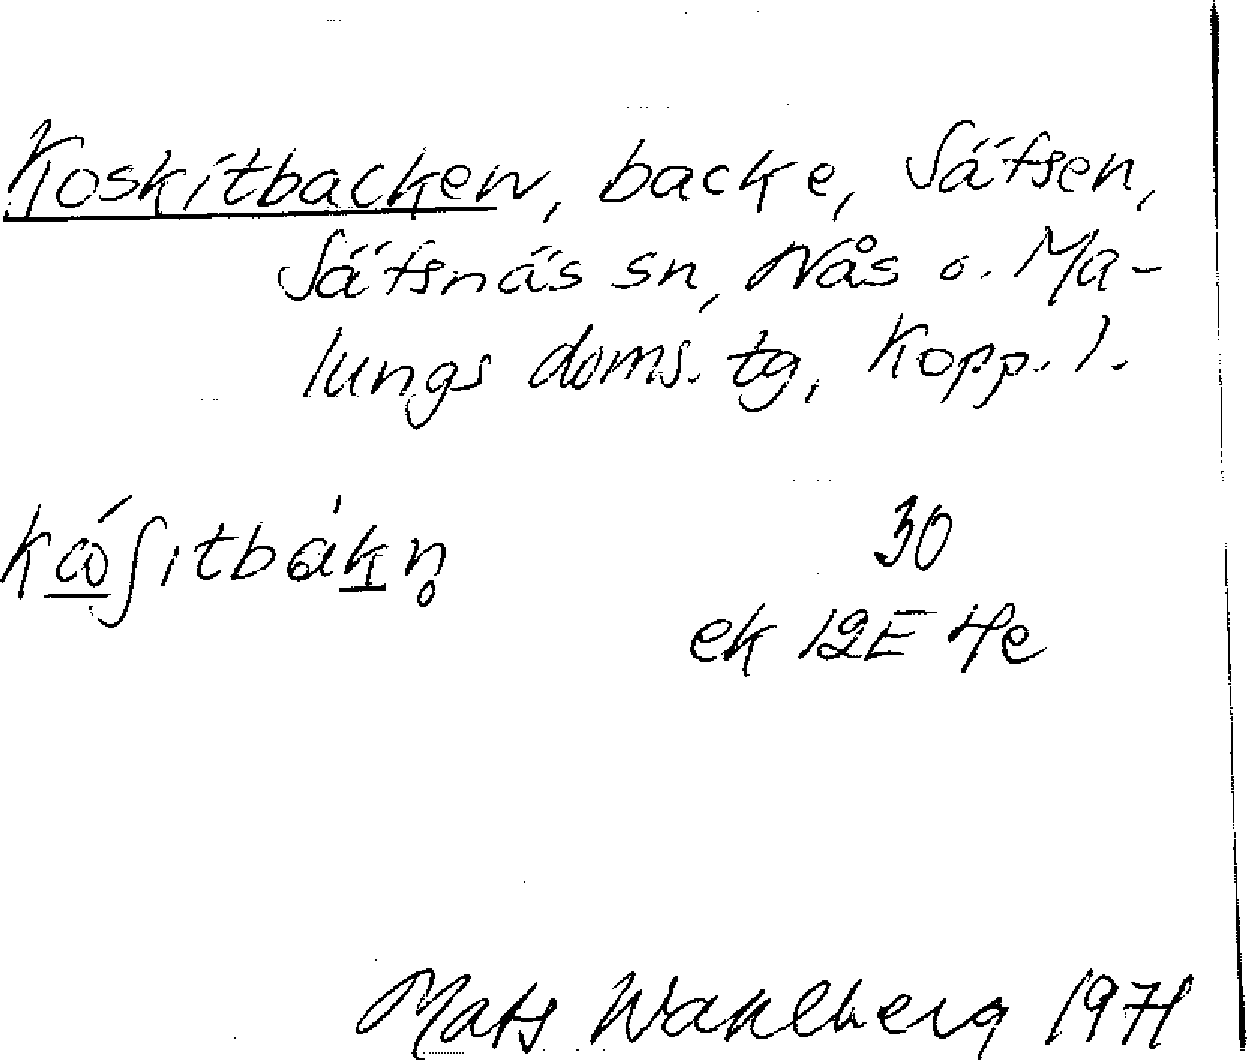 Koskitbacken, backe, Säfsen,
Säfsnäs sn, Nås o. Ma-
lungs doms. tg, Kopp. l.
kớʃitbàkn̥ 30
ek 12E 4e
Mats Wahlberg 1971